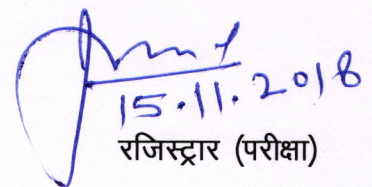 15.11.2018
रजिस्ट्रार (परीक्षा)